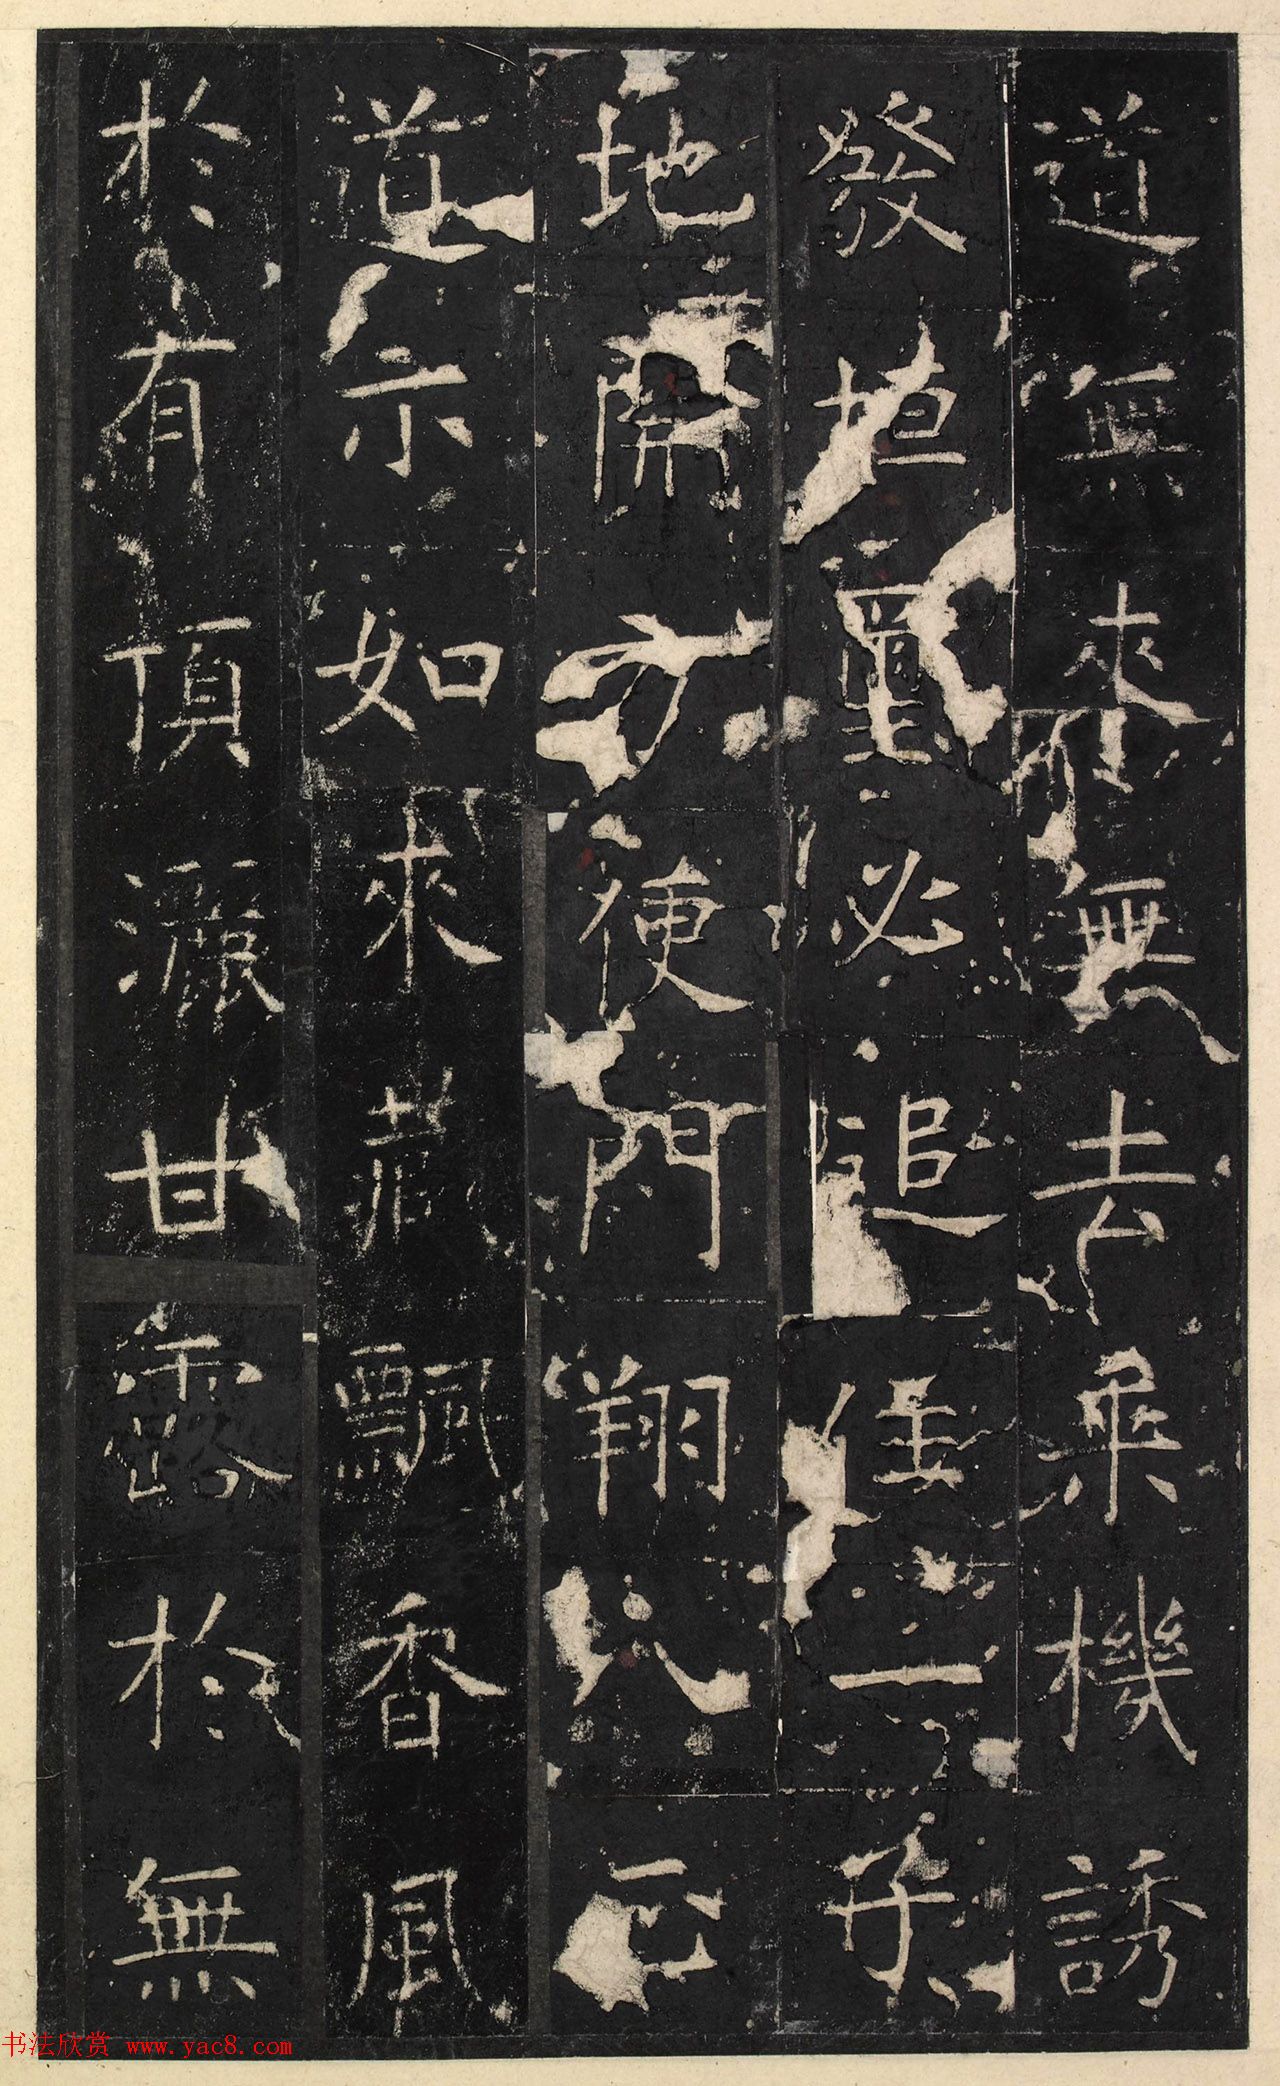 道無來無去乘機誘
發埴璽必追一子
地開方便門翔八正
道示如來藏飄香風
於有頂灑甘露於無
书法欣赏 www.yac8.com